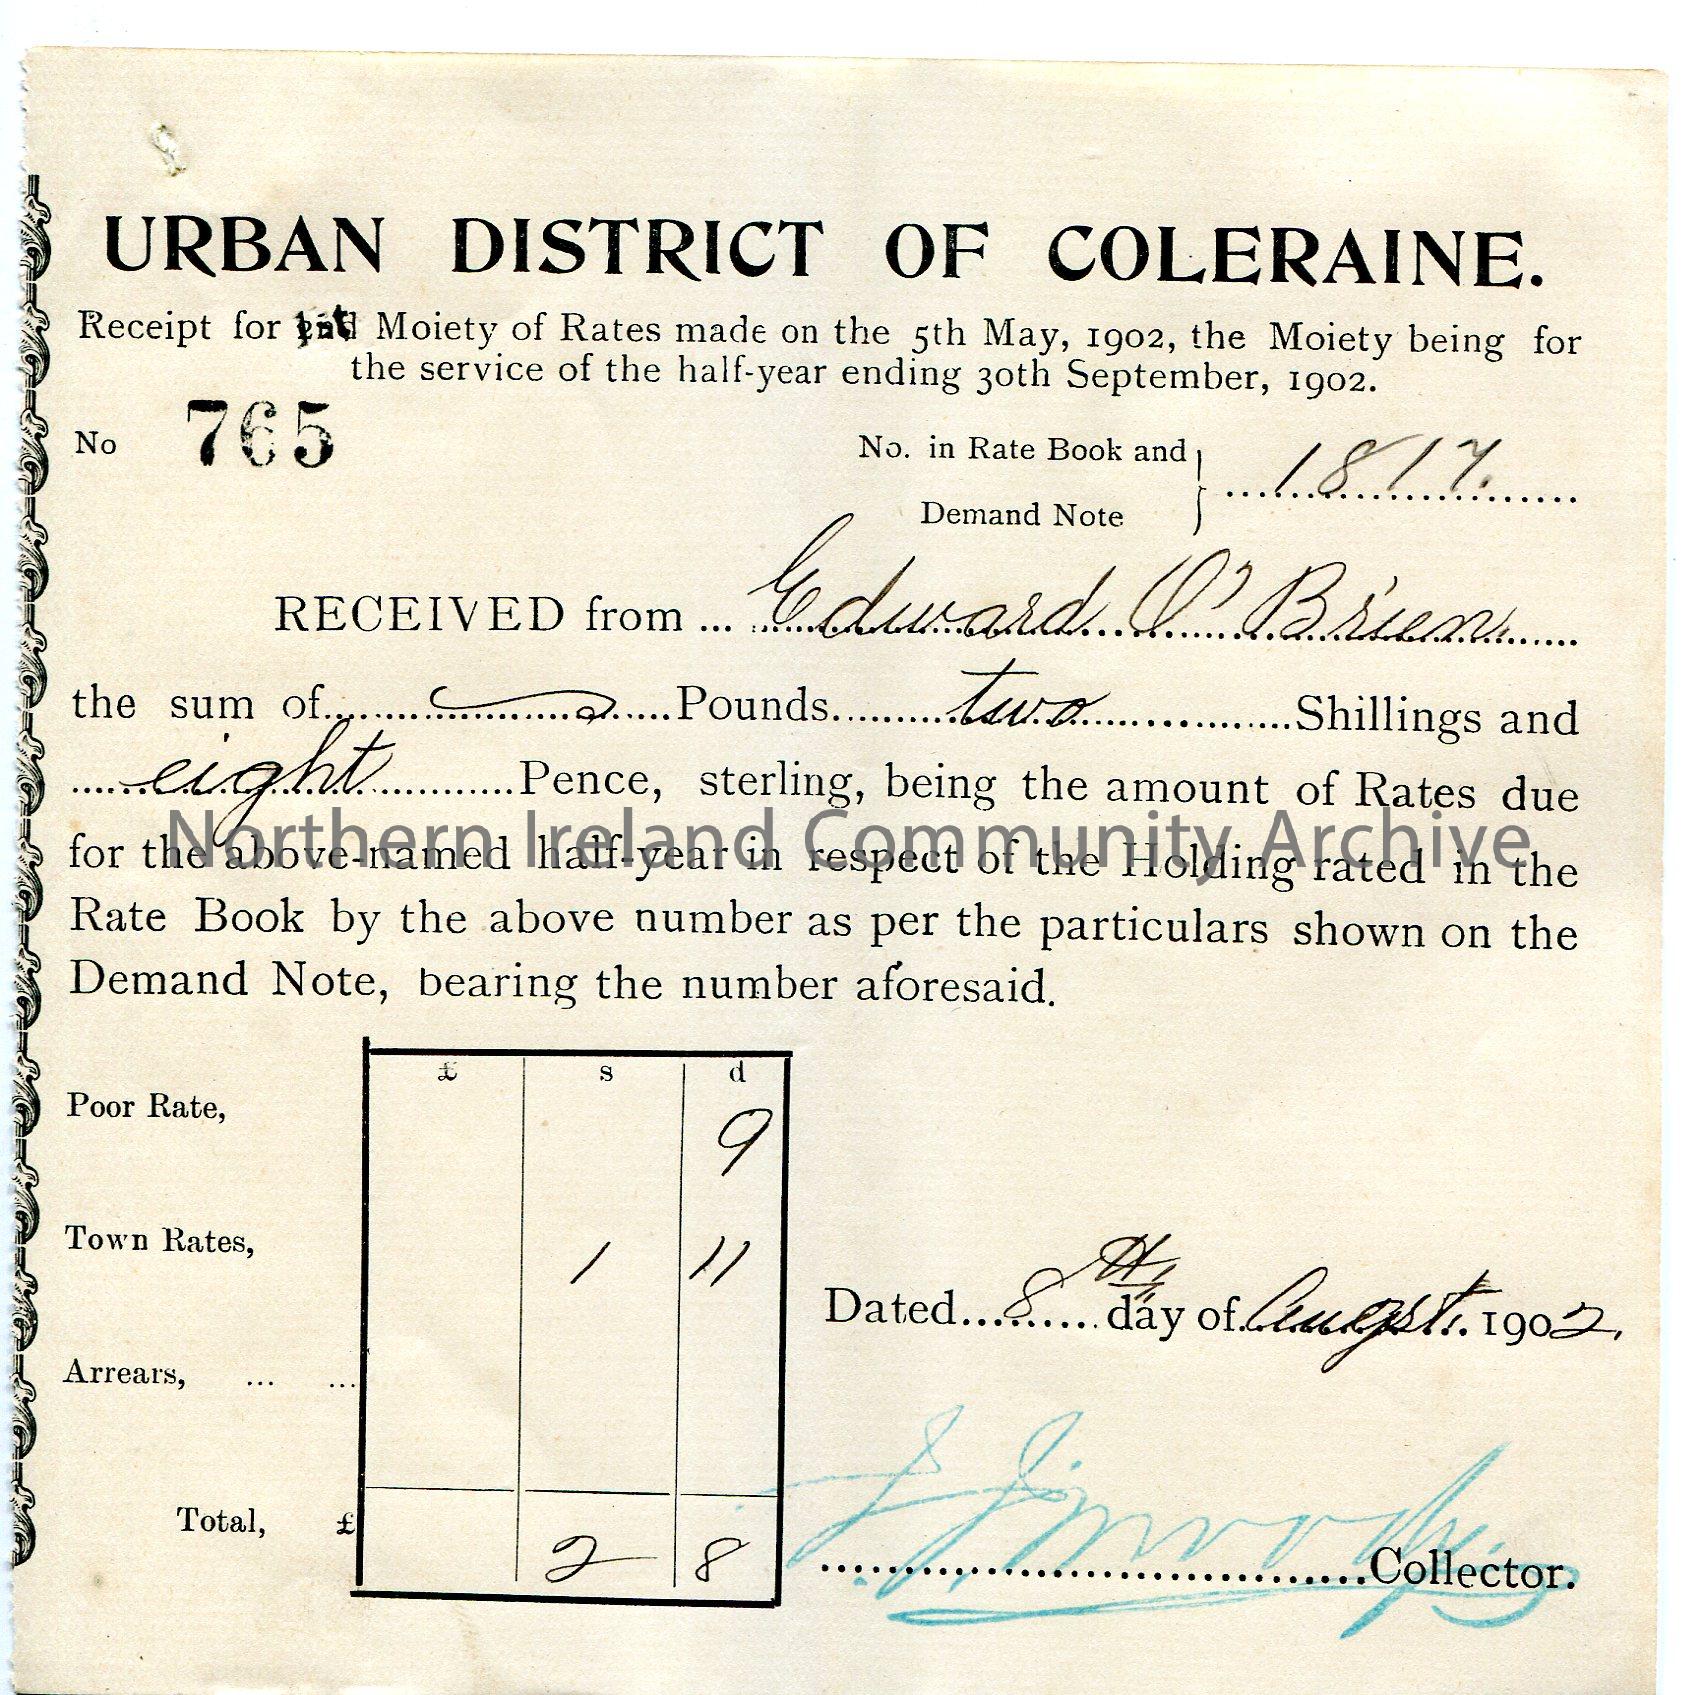 URBAN DISTRICT OF COLERAINE.
Receipt for 1st Moiety of Rates made on the 5th May, 1902, the Moiety being for
the service of the half-year ending 30th September, 1902.
No 765
No. in Rate Book and
Demand Note } 1817.
RECEIVED from ... Edward O'Brien
the sum of Pounds two Shillings and
eight Pence, sterling, being the amount of Rates due
Northern Ireland Community Archive
for the above-named half-year in respect of the Holding rated in the
Rate Book by the above number as per the particulars shown on the
Demand Note, bearing the number aforesaid.
£ s d
Poor Rate, 9
Town Rates, 1 11
Dated 8th day of Augst. 1902.
Arrears, ... ...
Total, £ 2 8
Collector.